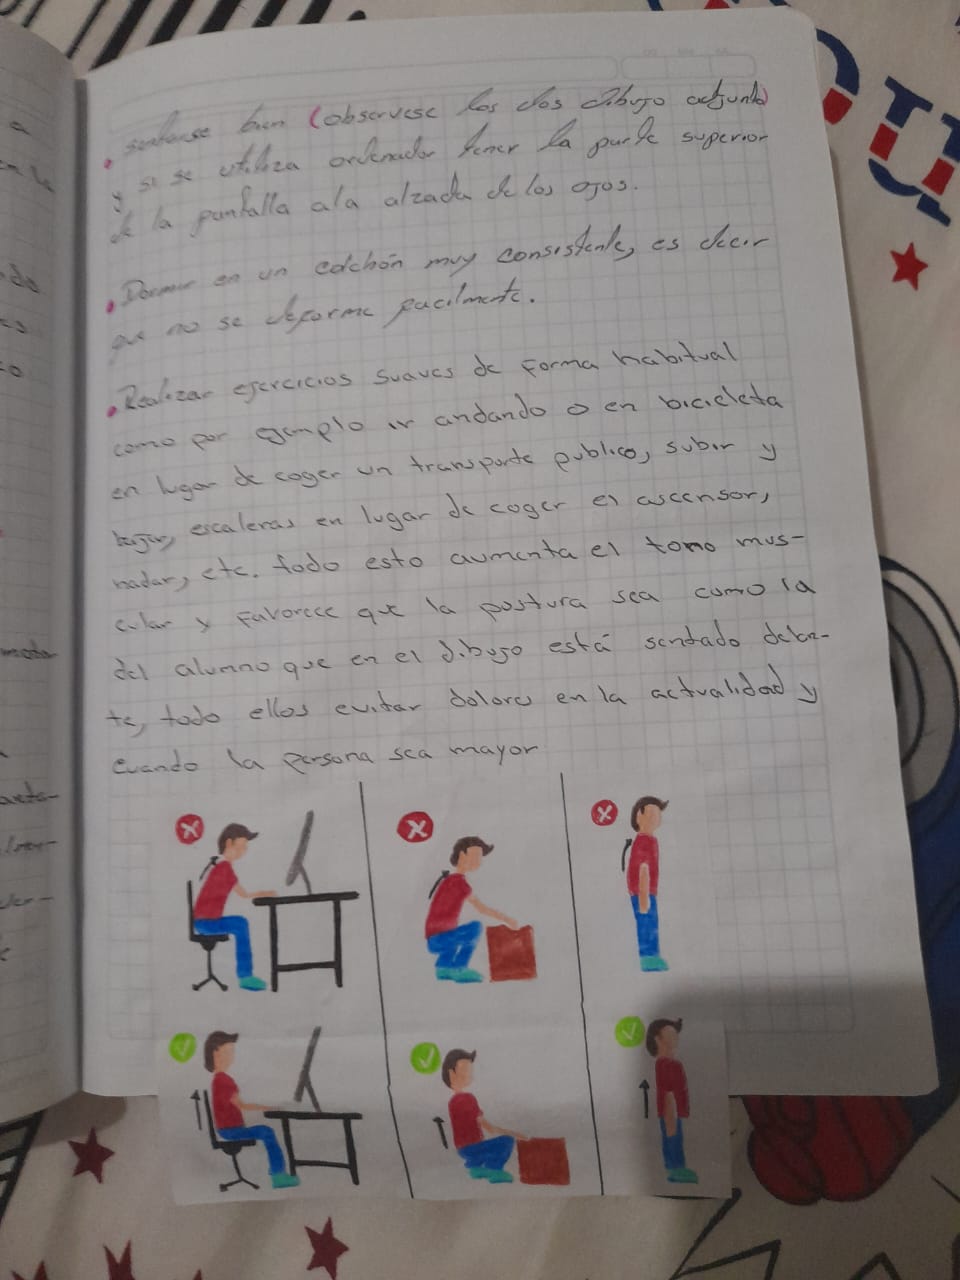 • sentarse bien (observese los dos dibujo adjunto)
y si se utiliza ordenador tener la parte superior
de la pantalla ala alzada de los ojos.
• Dormir en un colchón muy consistente, es decir
que no se deforme facilmente.
• Realizar ejercicios suaves de forma habitual
como por ejemplo ir andando o en bicicleta
en lugar de coger un transporte publico, subir y
bajar, escaleras en lugar de coger el ascensor,
nadar, etc. todo esto aumenta el tono mus-
cular y favorece que la postura sea como la
del alumno que en el dibujo está sentado delan-
te, todo ellos evitar dolores en la actualidad y
cuando la persona sea mayor